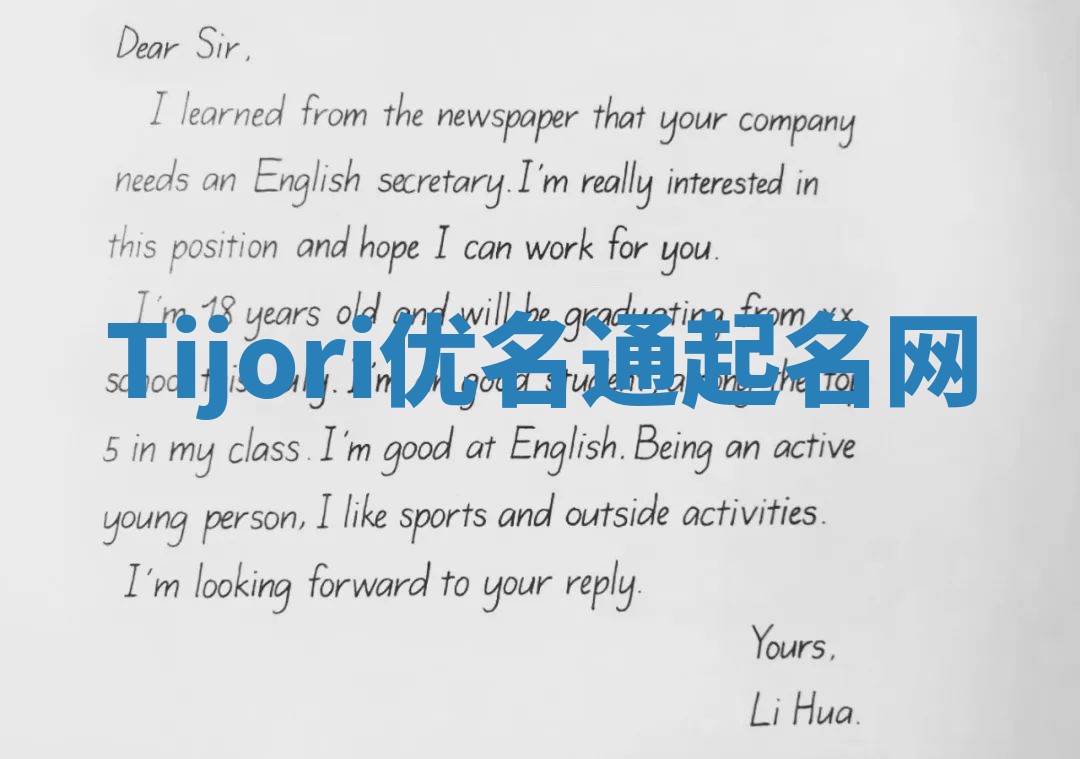 Dear Sir,
I learned from the newspaper that your company
needs an English secretary. I'm really interested in
this position and hope I can work for you.
I'm 18 years old and will be graduating from xx
Tijori优名通起名网
school this July. I'm good student, among the top
5 in my class. I'm good at English. Being an active
young person, I like sports and outside activities.
I'm looking forward to your reply.
Yours,
Li Hua.